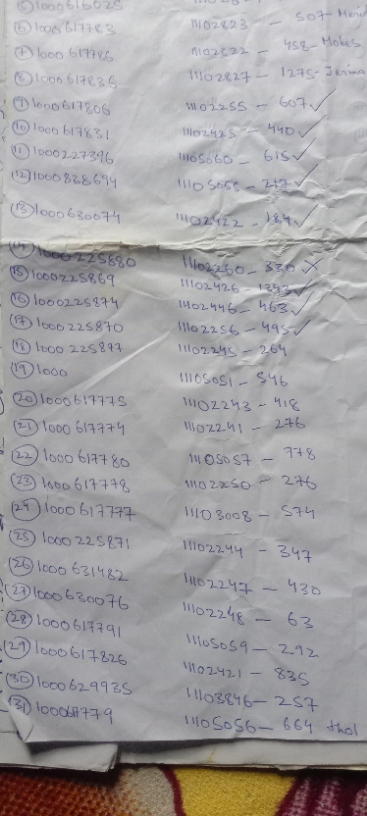 (5) 1000616025
(6) 1000617783 11102823 - 507-
(7) 1000617786 1102822 - 458- Mokes
(8) 1000617836 11102827 - 1275-
(9) 1000617806 11102255 - 607 ✓
(10) 1000617831 11102425 - 440 ✓
(11) 1000227396 11105060 - 615 ✓
(12) 1000838694 11105058 - 217 ✓
(13) 1000630074 11102422 - 184 ✓
(14) 1000225880 11102260 - 330 ✗
(15) 1000225869 11102426 - 1343 ✓
(16) 1000225874 11102446 - 463 ✓
(17) 1000225870 11102256 - 495 ✓
(18) 1000225877 11102245 - 264
(19) 1000 11105051 - 546
(20) 1000617775 11102243 - 418
(21) 1000617774 11102241 - 276
(22) 1000617780 11105057 - 778
(23) 1000617778 11102250 - 276
(24) 1000617777 11103008 - 574
(25) 1000225871 11102244 - 347
(26) 1000631482 11102247 - 430
(27) 1000630076 11102248 - 63
(28) 1000617791 11105059 - 292
(29) 1000617826 11102421 - 835
(30) 1000629935 11103846 - 257
(31) 100061779 11105056 - 664 thol